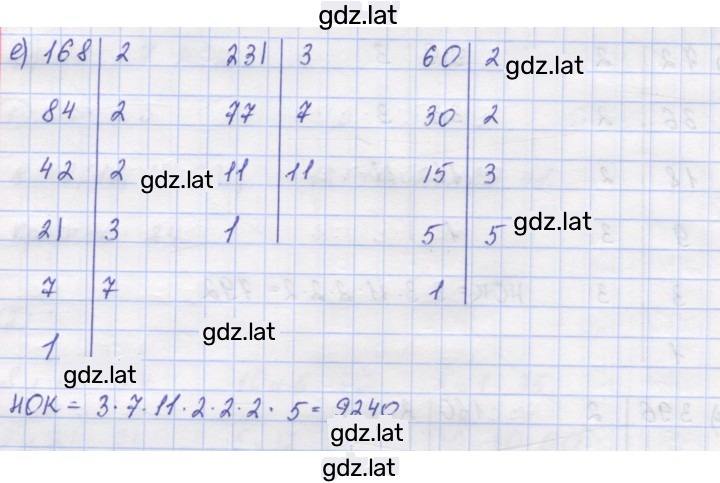 gdz.lat
е) 168 | 2 231 | 3 60 | 2
gdz.lat
84 | 2 77 | 7 30 | 2
42 | 2 11 | 11 15 | 3
gdz.lat
21 | 3 1 5 | 5
gdz.lat
7 | 7 1
gdz.lat
1
gdz.lat
НОК = 3·7·11·2·2·2·5 = 9240
gdz.lat
gdz.lat